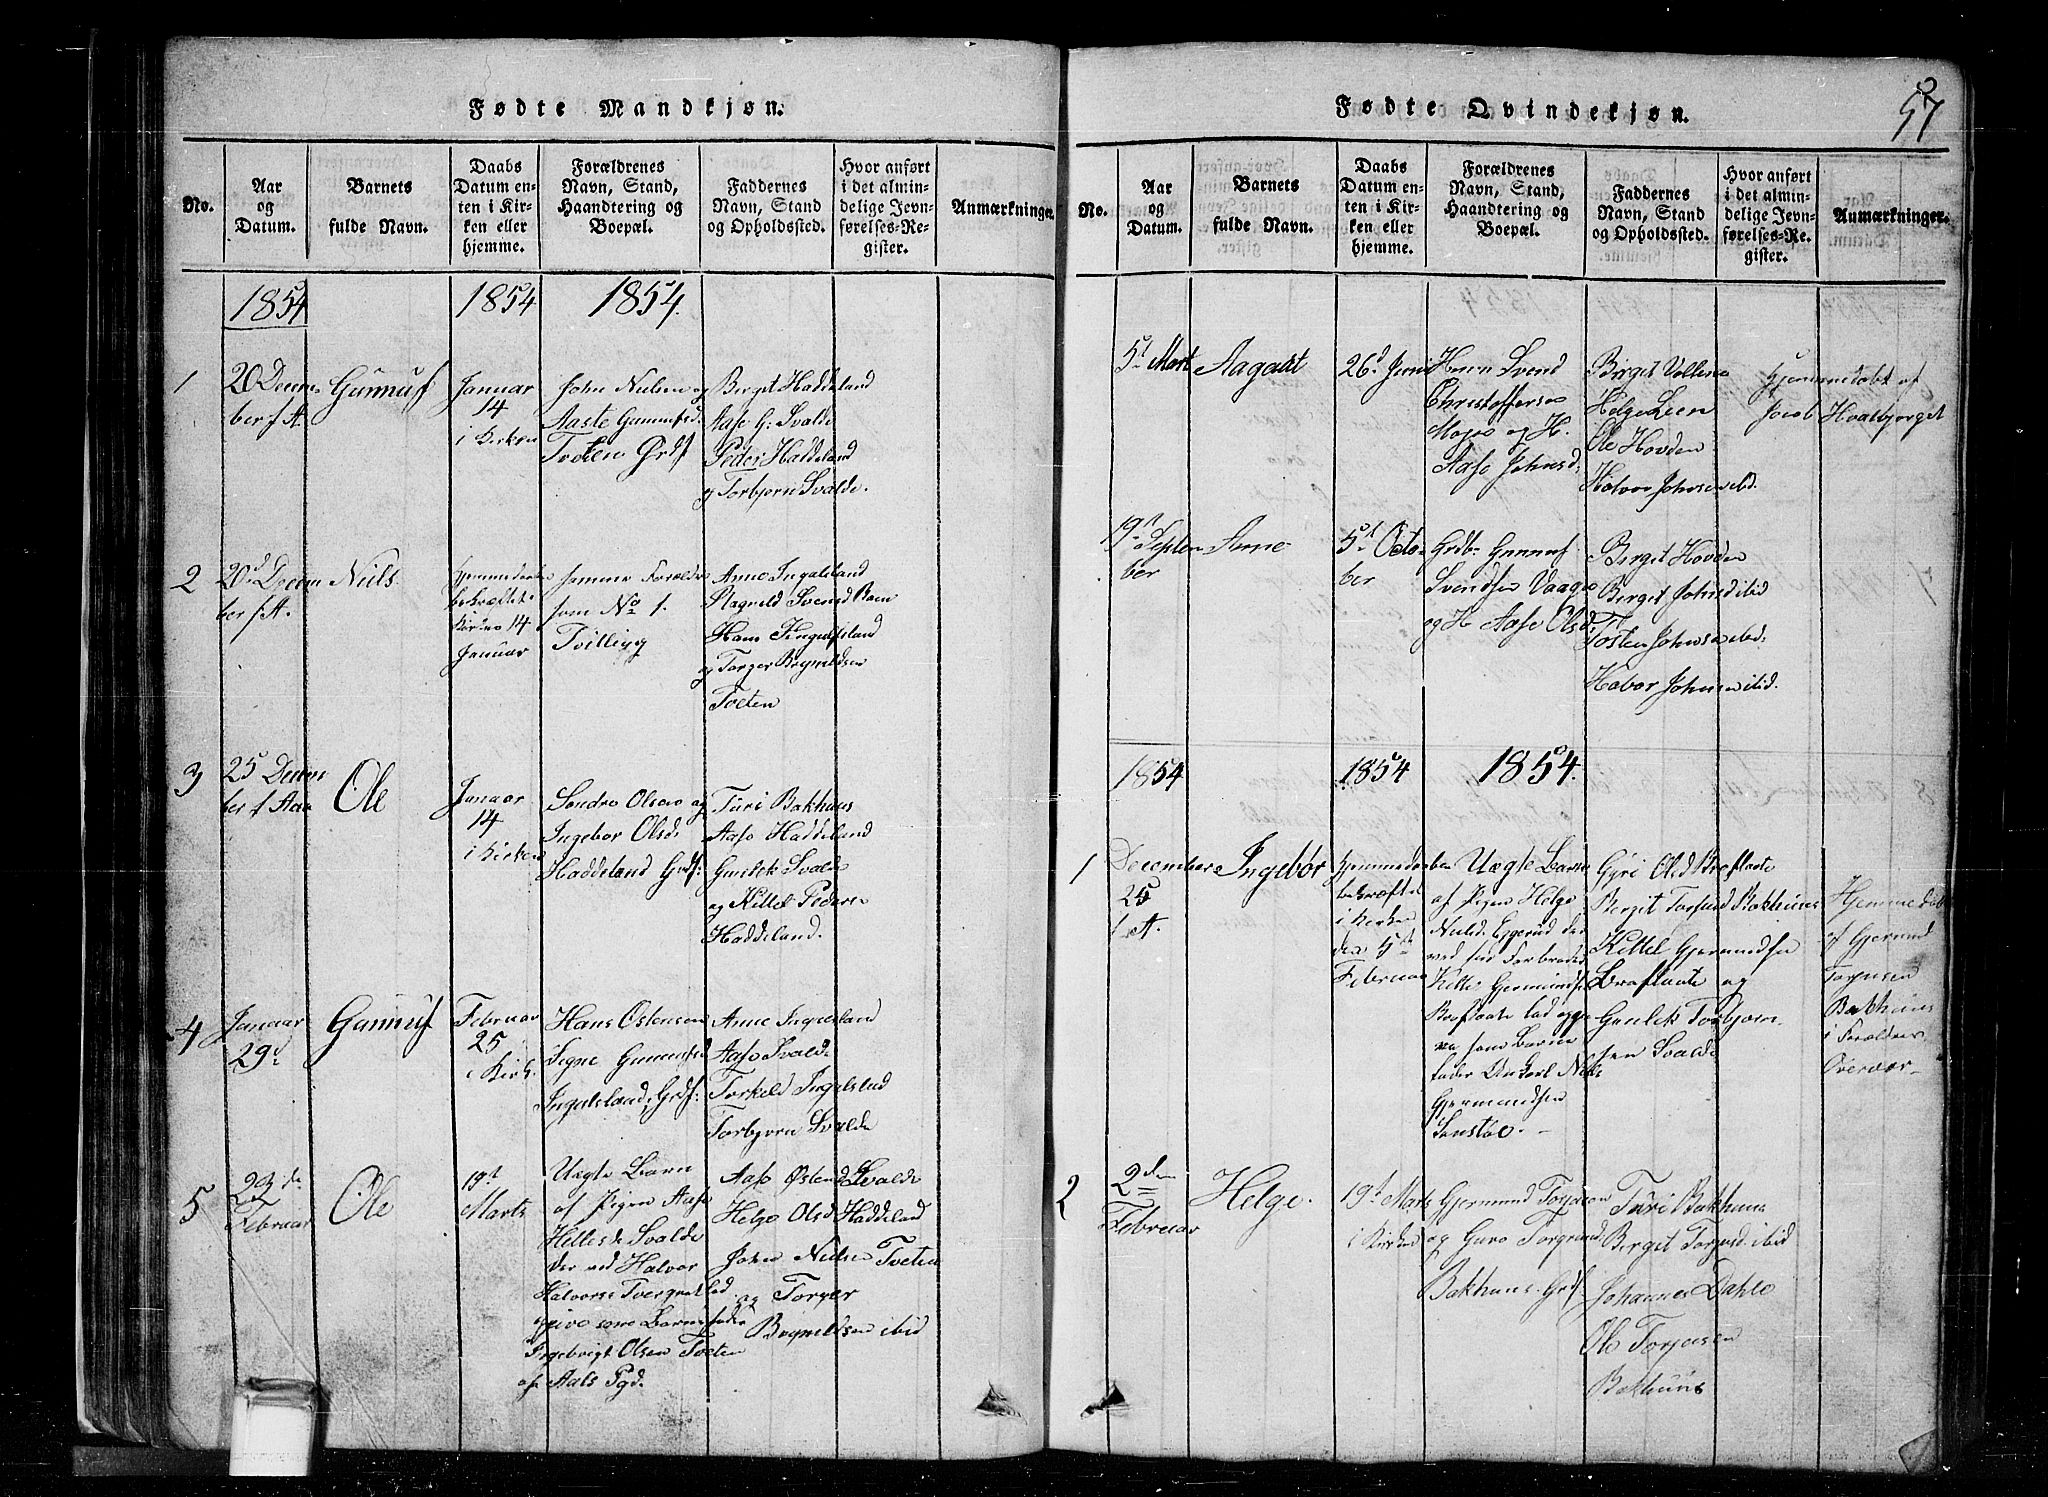 Fødte Mandkjøn.
No.
Aar
og
Datum.
Barnets
fulde Navn.
Daabs
Datum en-
ten i Kir-
ken eller
hjemme.
Forældrenes
Navn, Stand,
Haandtering og
Boepæl.
Faddernes
Navn, Stand
og Opholdssted.
Hvor anført
i det almin-
delige Jevn-
førelses-Re-
gister.
Anmærkninger.
1854
1854
1854.
1
20 Decem
ber f A.
Gunnuf
Januar
14
i Kirken
John Nielsen og
Aaste Gunnufsd.
Tveten Grdf
Birget Haddeland
Aase G. Svalde
Peder Haddeland
og Torbjørn Svalde.
2
20d Decem
ber f. A.
Niels
Hjemmedøbt
bekræftet i
Kirken 14
Januar
samme Foreldre
som No 1.
Tvilling
Anne Ingulsland
Ragnild Svensd
Hans Ingulfsland
og Torger Bryneldsen
Tveten
3
25 Decem
ber f Aar
Ole
Januar
14
i Kirken
Sondre Olsen og
Ingebor Olsd.
Haddeland Grdf:
Turi Bakhuus
Aase Haddeland
Gunlek Svalde
og Kittel Pedersen
Haddeland.
4
Januar
29d
Gunnuf
Februar
25
i Kirk.
Hans Ostensen
Signe Gunnufsd
Ingulsland, Grdf.
Anne Ingulsland
Aase Svalde
Torkeld Ingulsland
Torbjørn Svalde
5
23de
Februar
Ole
19t
Marts
Uægte Barn
af Pigen Aase
Hellesd. Svalde
der ved Halvor
Halvorsen
opgive som Barnefader
Ingebrigt Olsen Tveten
af Aals Pgd.
Aase Østensd Svalde
Helge Olsd Haddeland
John Nielsen Tveten
og Torger
Bryneldsen ibid
57
Fødte Qvindekjøn.
No.
Aar
og
Datum.
Barnets
fulde Navn.
Daabs
Datum en-
ten i Kir-
ken eller
hjemme.
Forældrenes
Navn, Stand,
Haandtering og
Boepæl.
Faddernes
Navn, Stand
og Opholdssted.
Hvor anført
i det almin-
delige Jevn-
førelses-Re-
gister.
Anmærkninger.
5t Mart
Aagaat
26d Juni
Svend
Christoffersen
Moen og H.
Aase Johnsd.
Birget Vollene
Helge Leen
Ole Hovden
Halvor Johnsen ibid.
Hjemmedøbt af
Jacob Hvalbjorget
19t Septem
ber
Anne
5t Octo
ber
Grdbr. Gunnuf
Svendsen Vaagen
og H. Aase Olsd.
Birget Hovden
Birget Johnsd ibid
Tosten Johnsen ibid.
Halvor Johnsen ibid.
1854
1854
1854.
1
December
25
f A.
Ingebor
Hjemmedøbt
bekræftet
i Kirken
den 5te
Februar
Uægte Barn
af Pigen Helge
Nielsd. Eggerud der
ved sin Forbroder
Kittel Gjermundsen
Brøflaate lod opgi
ve som Barne
fader Ungkarl Niels
Gjermundsen
Sønstøe.
Gyri Olsd Brøflaate
Bergit Torjusd Bakhuus
Kittel Gjermundsen
Brøflaate og
Gunlek Torbjørn
sen Svalde
Hjemmedøbt
af Gjermund
Torjusen
Bakhuus
i Foreldres
Overvær
2
2den
Februar
Helge.
19t Marts
i Kirken
Gjermund Torjusen
og Guro Torgrimsd
Bakhuus. Grdf.
Turi Bakhuus
Berget Torjusd. ibid
Johannes Dahle
Ole Torjusen
Bakhuus